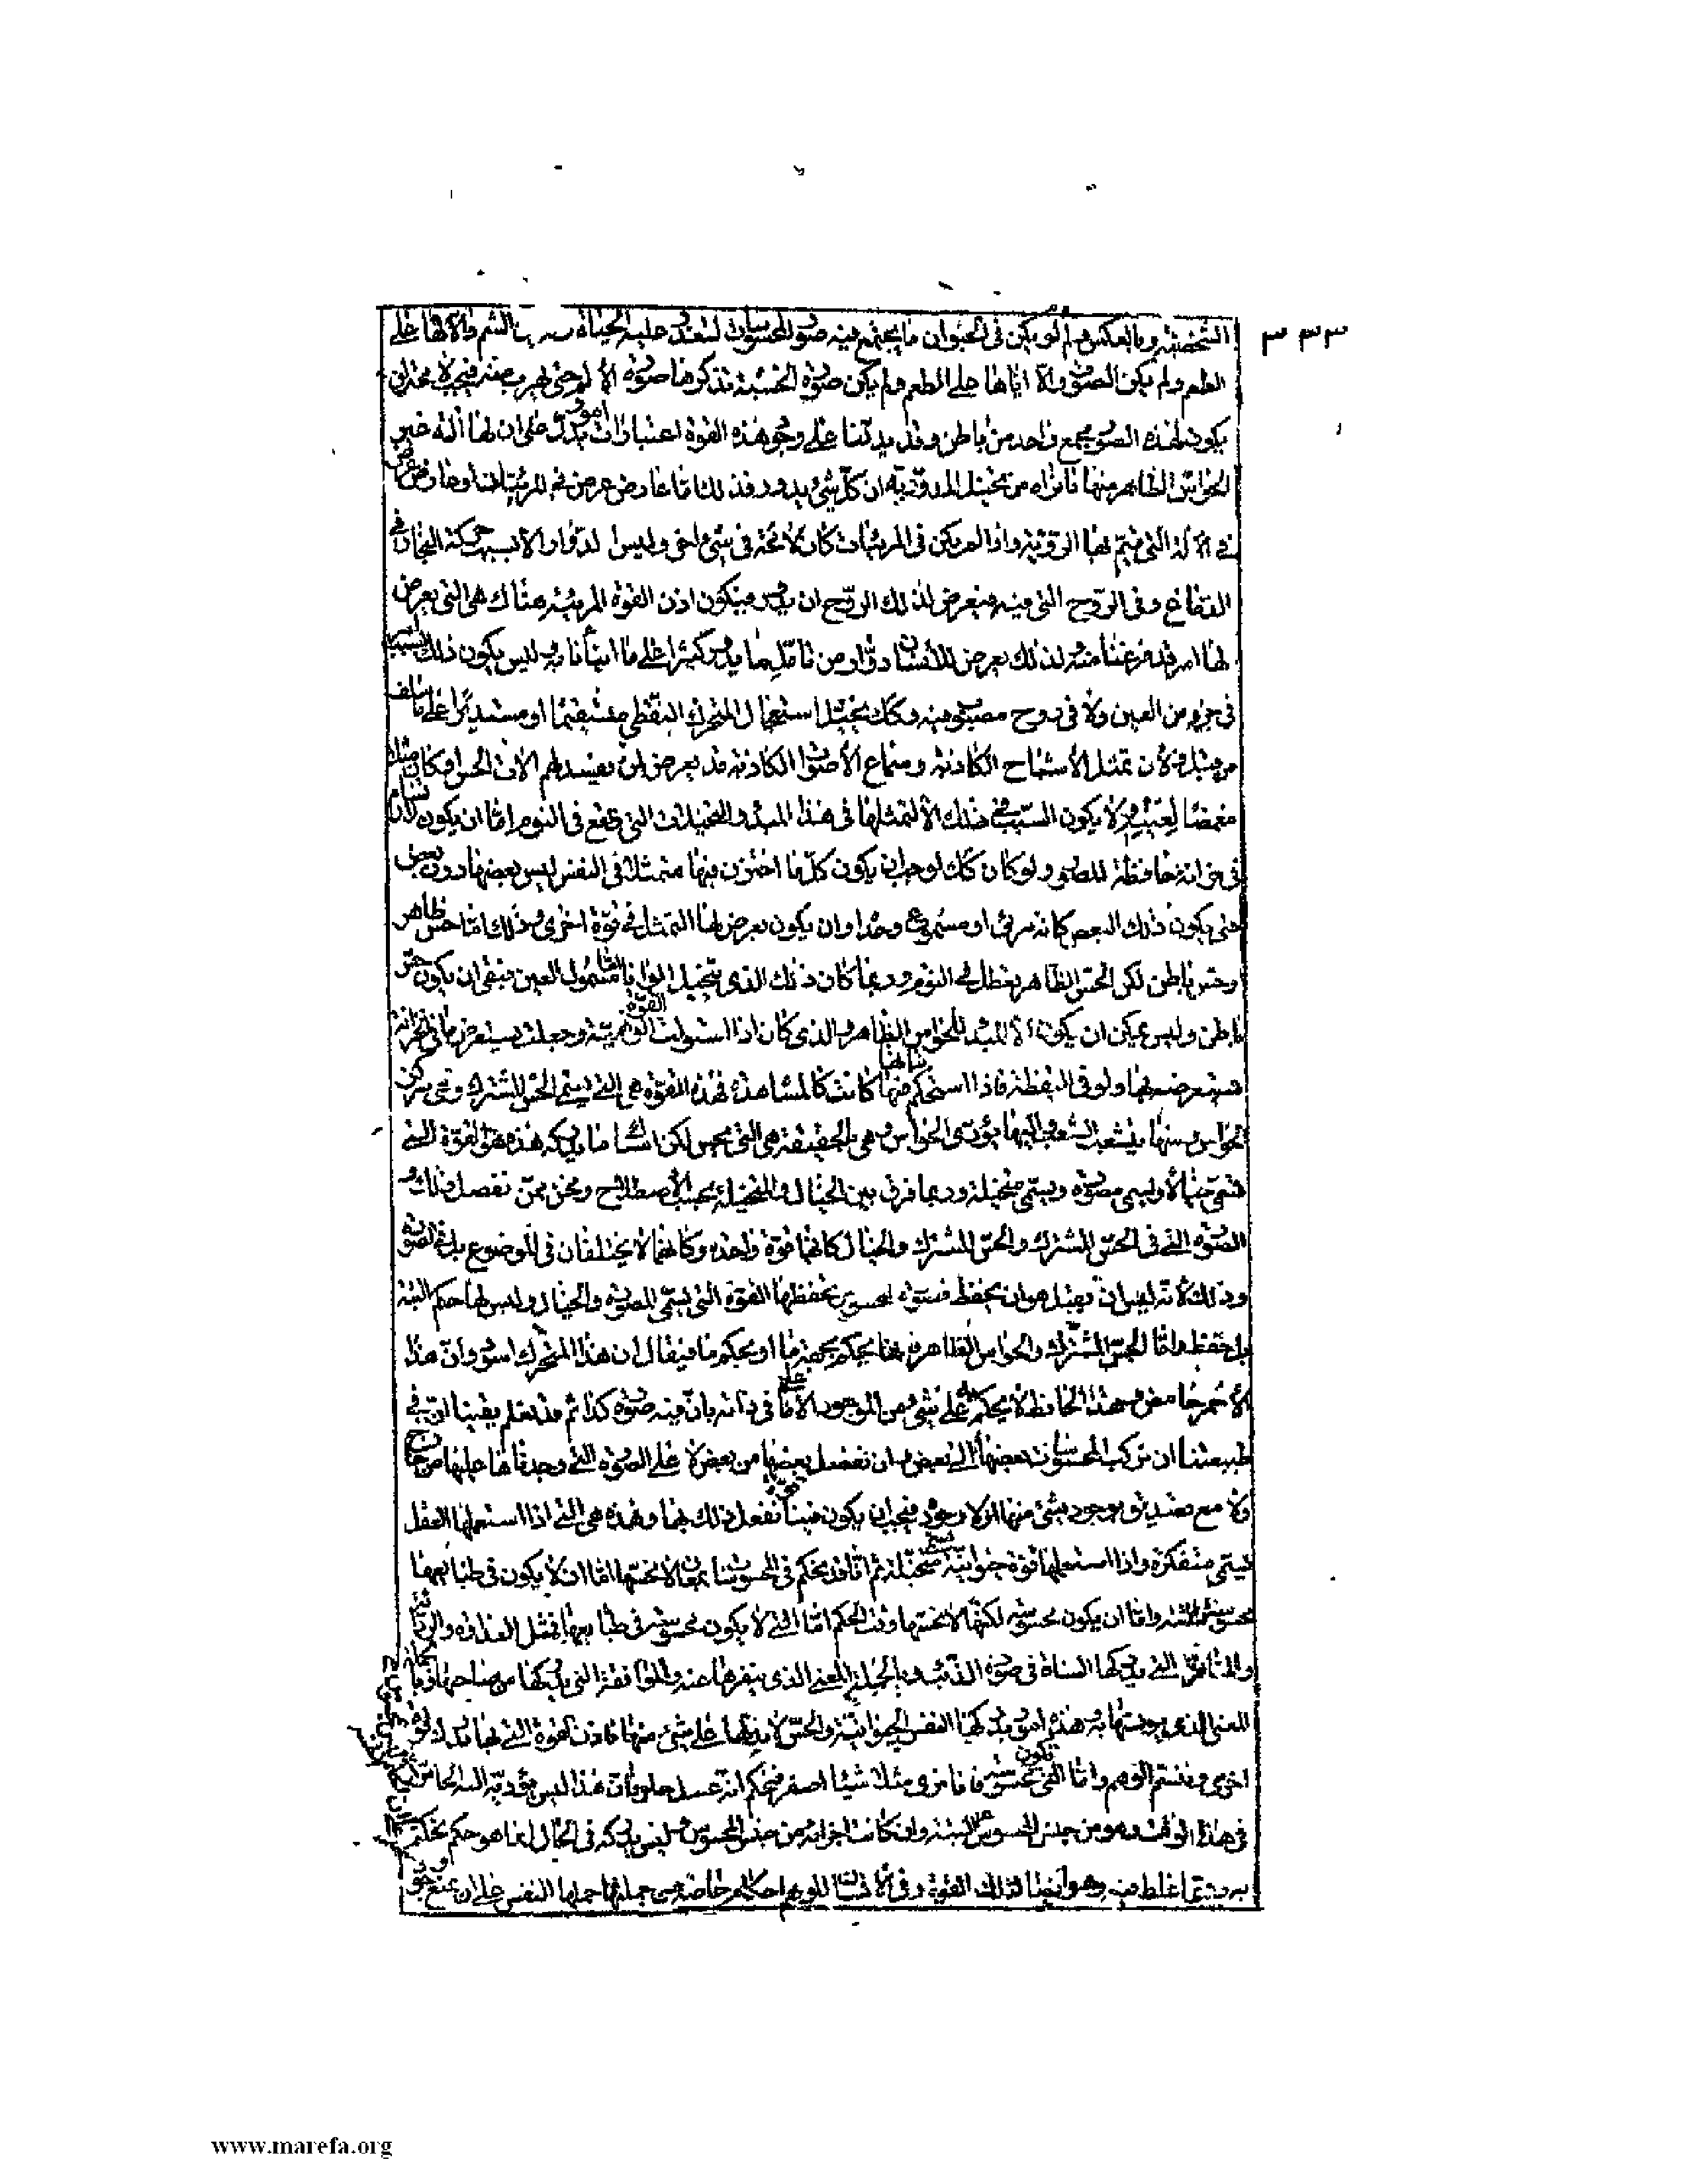 ٣٣٣
الشخصية وبالعكس ولو لم يكن فى الحيوان ما يجتمع فيه صور المحسوسات لتعذر عليه الحياة الشم دالا لها على
الطعم ولم يكن الصوت دالا اياها على الطعم ولم يكن صورة الخشبة تذكرها صورة الألم حتى تهرب منه فيجب لا محالة ان
يكون لهذه الصور مجمع واحد من باطن وقد يدلنا على وجود هذه القوة اعتبارات امور تدل على ان لها آلة غير
الحواس الظاهرة منها ما نراه من تخيل المدور به ان كل شىء يدور فذلك اما عارض عرض فى المرئيات او عارض عرض
فى الآلة التى تتم بها الرؤية واذا لم يكن فى المرئيات كان لا محالة فى شىء اخر وليس الدوار الا بسبب حركة البخار فى
الدماغ وفى الروح التى فيه فيعرض لذلك الروح ان يدور فيكون اذن القوة المرتبة هناك هى التى يعرض
لها امر قد فرغنا منه وكذلك يعرض للانسان دوار من تأمل ما يدور كثيرا على ما انبأنا به وليس يكون ذلك بسبب امر
فى جزء من العين ولا فى روح مصبوب فيه وكذلك تخيل استعجال المتحرك النقطى مستقيما او مستديرا على ما سلف
من قبل ولأن تمثل الأشباح الكاذبة وسماع الأصوات الكاذبة قد يعرض لمن تفسد لهم آلات الحس او كان مثلا
مغمضا لعينيه ولا يكون السبب فى ذلك الا لتمثلها فى هذا المبدأ والتخيلات التى تقع فى النوم اما ان يكون لارتسام
فى خزانة حافظة للصور ولو كان كذلك لوجب ان يكون كل ما اختزن فيها متمثلا فى النفس ليس بعضها دون بعض
حتى يكون ذلك البعض كانه مرئى او مسموع وحده او ان يكون يعرض لها التمثل فى قوة اخرى وذلك اما حس ظاهر
وحس باطن لكن الحس الظاهر معطل فى النوم وربما كان ذلك الذى يتخيل الوانا ما مسمول العين فبقى ان يكون حس
باطن وليس يمكن ان يكون الا المبدأ للحواس الظاهرة والذى كان اذا استولت القوة الوهمية وجعلت تستعرض ما فى الخزانة
تستعرضه بها ولو فى اليقظة فاذا استحكم ثباتها فيها كانت كالمشاهدة فهذه القوة هى التى تسمى الحس المشترك وهى مركز
الحواس ومنها يتشعب الشعب واليها يؤدى الحواس وهى بالحقيقة هى التى تحس لكن امساك ما يدركه هذه هو للقوة التى
تسمى خيالا وتسمى مصورة وتسمى متخيلة وربما فرق بين الخيال والمتخيلة بحسب الأصطلاح ونحن ممن نفصل ذلك
الصورة التى فى الحس المشترك والحس المشترك والخيال كانهما قوة واحدة وكانهما لا يختلفان فى الموضوع بل فى الصورة
وذلك لأنه ليس ان يقبل هو ان يحفظ فصورة المحسوس تحفظها القوة التى تسمى المصورة والخيال وليس لها حكم البتة
بل حفظ واما الحس المشترك والحواس الظاهرة فانها تحكم بجهة ما او بحكم ما فيقال ان هذا المتحرك اسود وان هذا
الأحمر حامض وهذا الحافظ لا يحكم به على شىء من الموجود الا على ما فى ذاته بان فيه صورة كذا ثم قد نعلم يقينا ان فى
طبيعتنا ان نركب المحسوسات بعضها الى بعض وان نفصل بعضها من بعض لا على الصورة التى وجدناها عليها من خارج
ولا مع تصديق بوجود شىء منها او لا وجوده فيجب ان يكون فينا قوة نفعل ذلك بها وهذه هى التى اذا استعملها العقل
تسمى متفكرة واذا استعملتها قوة حيوانية تسمى متخيلة ثم انا قد نحكم فى المحسوسات بمعان لا نحسها اما ان لا يكون فى طبائعها
محسوسة البتة واما ان يكون محسوسة لكنها لا نحسها وقت الحكم اما التى لا يكون محسوسة فى طبائعها فمثل العداوة والرداءة
والمنافرة التى يدركها الشاة فى صورة الذئب وبالجملة المعنى الذى ينفرها عنه والموافقة التى يدركها من صاحبها وبالجملة
المعنى الذى يونسها به وهذه امور يدركها النفس الحيوانية والحس لا يدلها على شىء منها فاذن القوة التى بها يدرك قوة
اخرى ولتسم الوهم واما التى تكون محسوسة فانا نرى مثلا شيئا اصفر فنحكم انه عسل وحلو فان هذا ليس يؤديه اليه الحاس
فى هذا الوقت وهو من جنس المحسوس على ان الحكم نفسه ليس بمحسوس البتة وان كانت اجزائه من جنس المحسوس وليس يدركه فى الحال انما هو حكم يحكم
به وربما غلط فيه وهو ايضا لتلك القوة وفى الأنسان للوهم احكام خاصة من جملتها حملها النفس على ان يمنع وجود
www.marefa.org